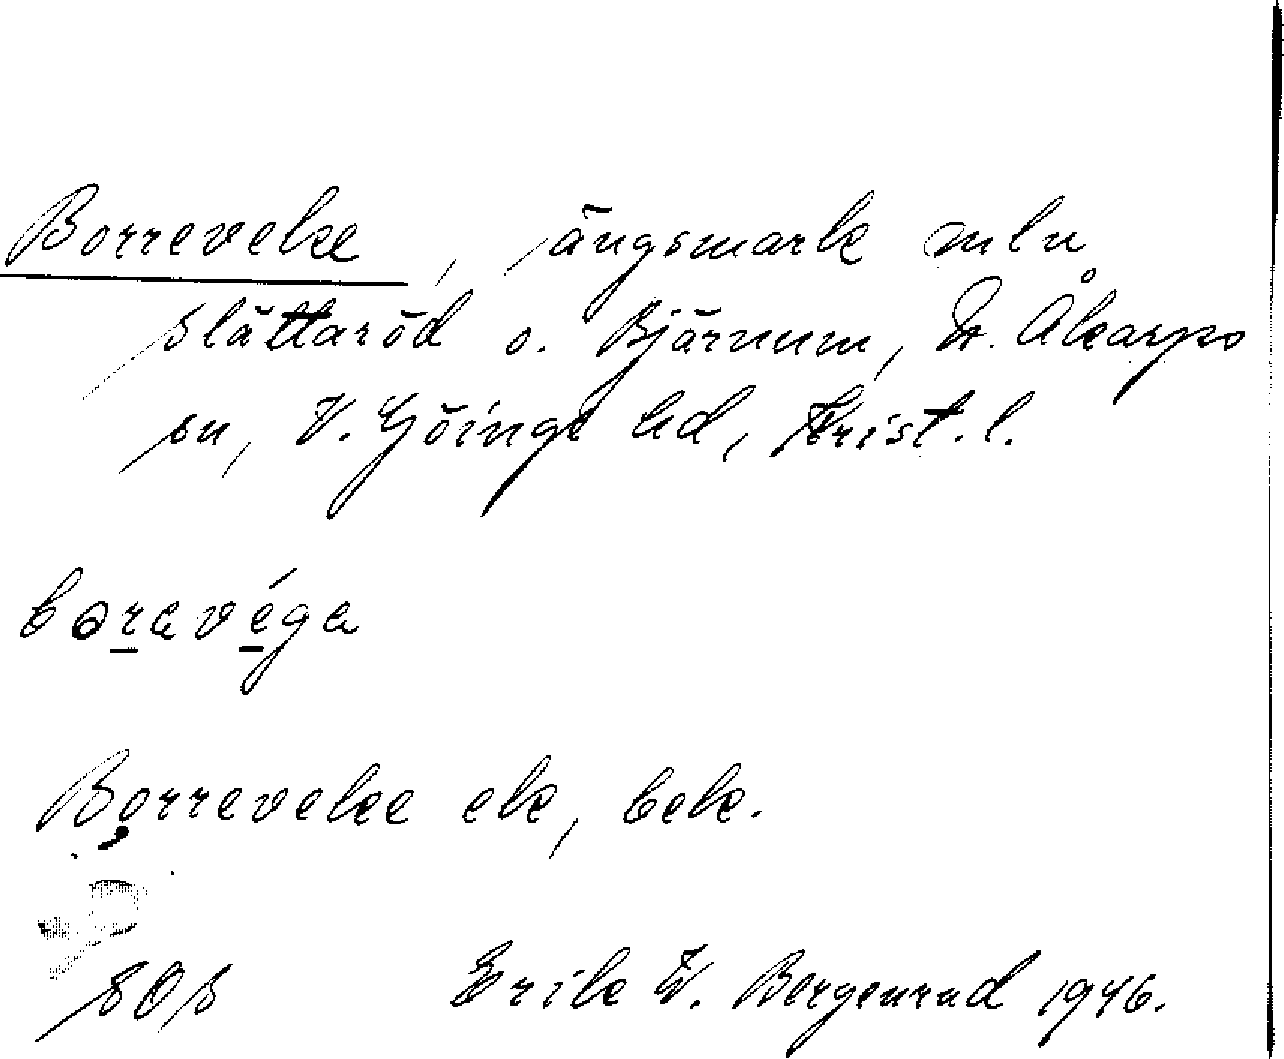 Borreveke, ängsmark mln
Slättaröd o. Bjärnum, N. Åkarps
sn, V. Göinge hd, Krist. l.
bǫravéga
Borreveke ek, bek.
SOS Erik W. Bergenrud 1946.